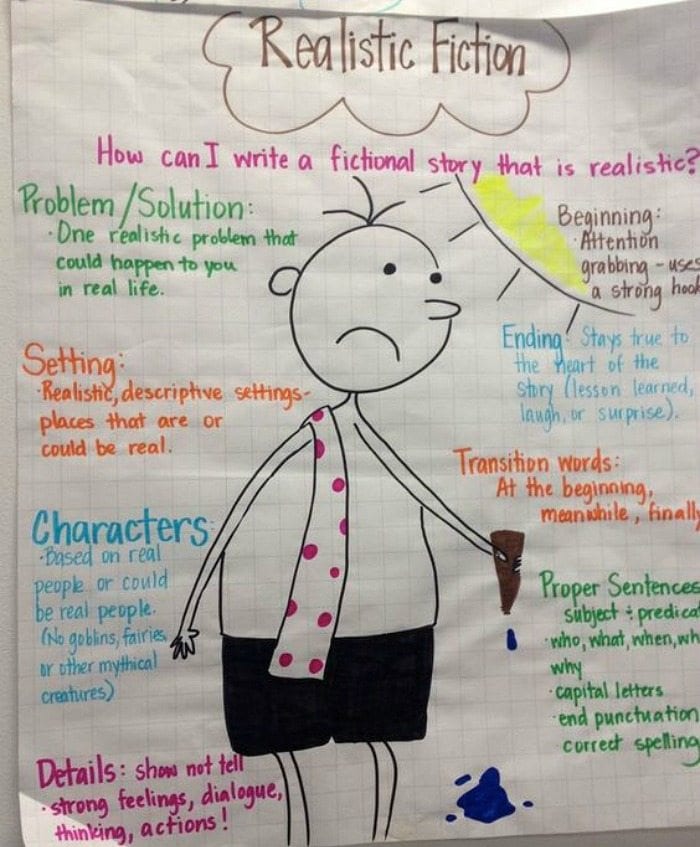 Realistic Fiction
How can I write a fictional story that is realistic?
Problem/Solution:
· One realistic problem that
could happen to you
in real life.
Setting:
· Realistic, descriptive settings-
places that are or
could be real.
Characters:
· Based on real
people or could
be real people.
(No goblins, fairies,
or other mythical
creatures)
Details: show not tell
· strong feelings, dialogue,
thinking, actions!
Beginning:
· Attention
grabbing - uses
a strong hook
Ending: Stays true to
the heart of the
story (lesson learned,
laugh, or surprise).
Transition words:
At the beginning,
meanwhile, finally
Proper Sentences
subject & 
· who, what, when,
why
· capital letters
· end punctuation
correct spelling